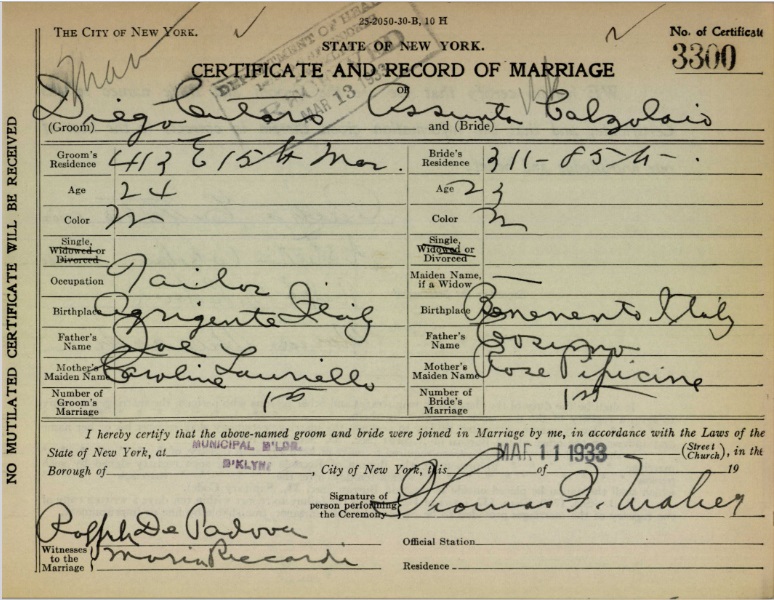 25-2050-30-B, 10 H
THE CITY OF NEW YORK.
No. of Certificate
STATE OF NEW YORK.
3300
CERTIFICATE AND RECORD OF MARRIAGE
DEPARTMENT OF HEALTH
MAR 13 1933
OF
Diego Cutaro Assunta Calzolaio
(Groom) and (Bride)
Groom's Residence 413 E 15th Man. Bride's Residence 311-85th-.
Age 24 Age 23
Color W Color W
Single, Widowed or Divorced Single, Widowed or Divorced
Occupation Tailor Maiden Name, if a Widow —
Birthplace Agrigento Italy Birthplace Benevento Italy
Father's Name Joe Father's Name Cosimo
Mother's Maiden Name Caroline Lauriello Mother's Maiden Name Rose Pipicine
Number of Groom's Marriage 1st Number of Bride's Marriage 1st
I hereby certify that the above-named groom and bride were joined in Marriage by me, in accordance with the Laws of the
State of New York, at MUNICIPAL B'LDG. MAR 11 1933 (Street Church), in the
Borough of B'KLYN, City of New York, this of 19
Signature of person performing the Ceremony Thomas F. Maher
Ralph De Padova
Official Station
Witnesses to the Marriage Maria Riccardi
Residence
NO MUTILATED CERTIFICATE WILL BE RECEIVED